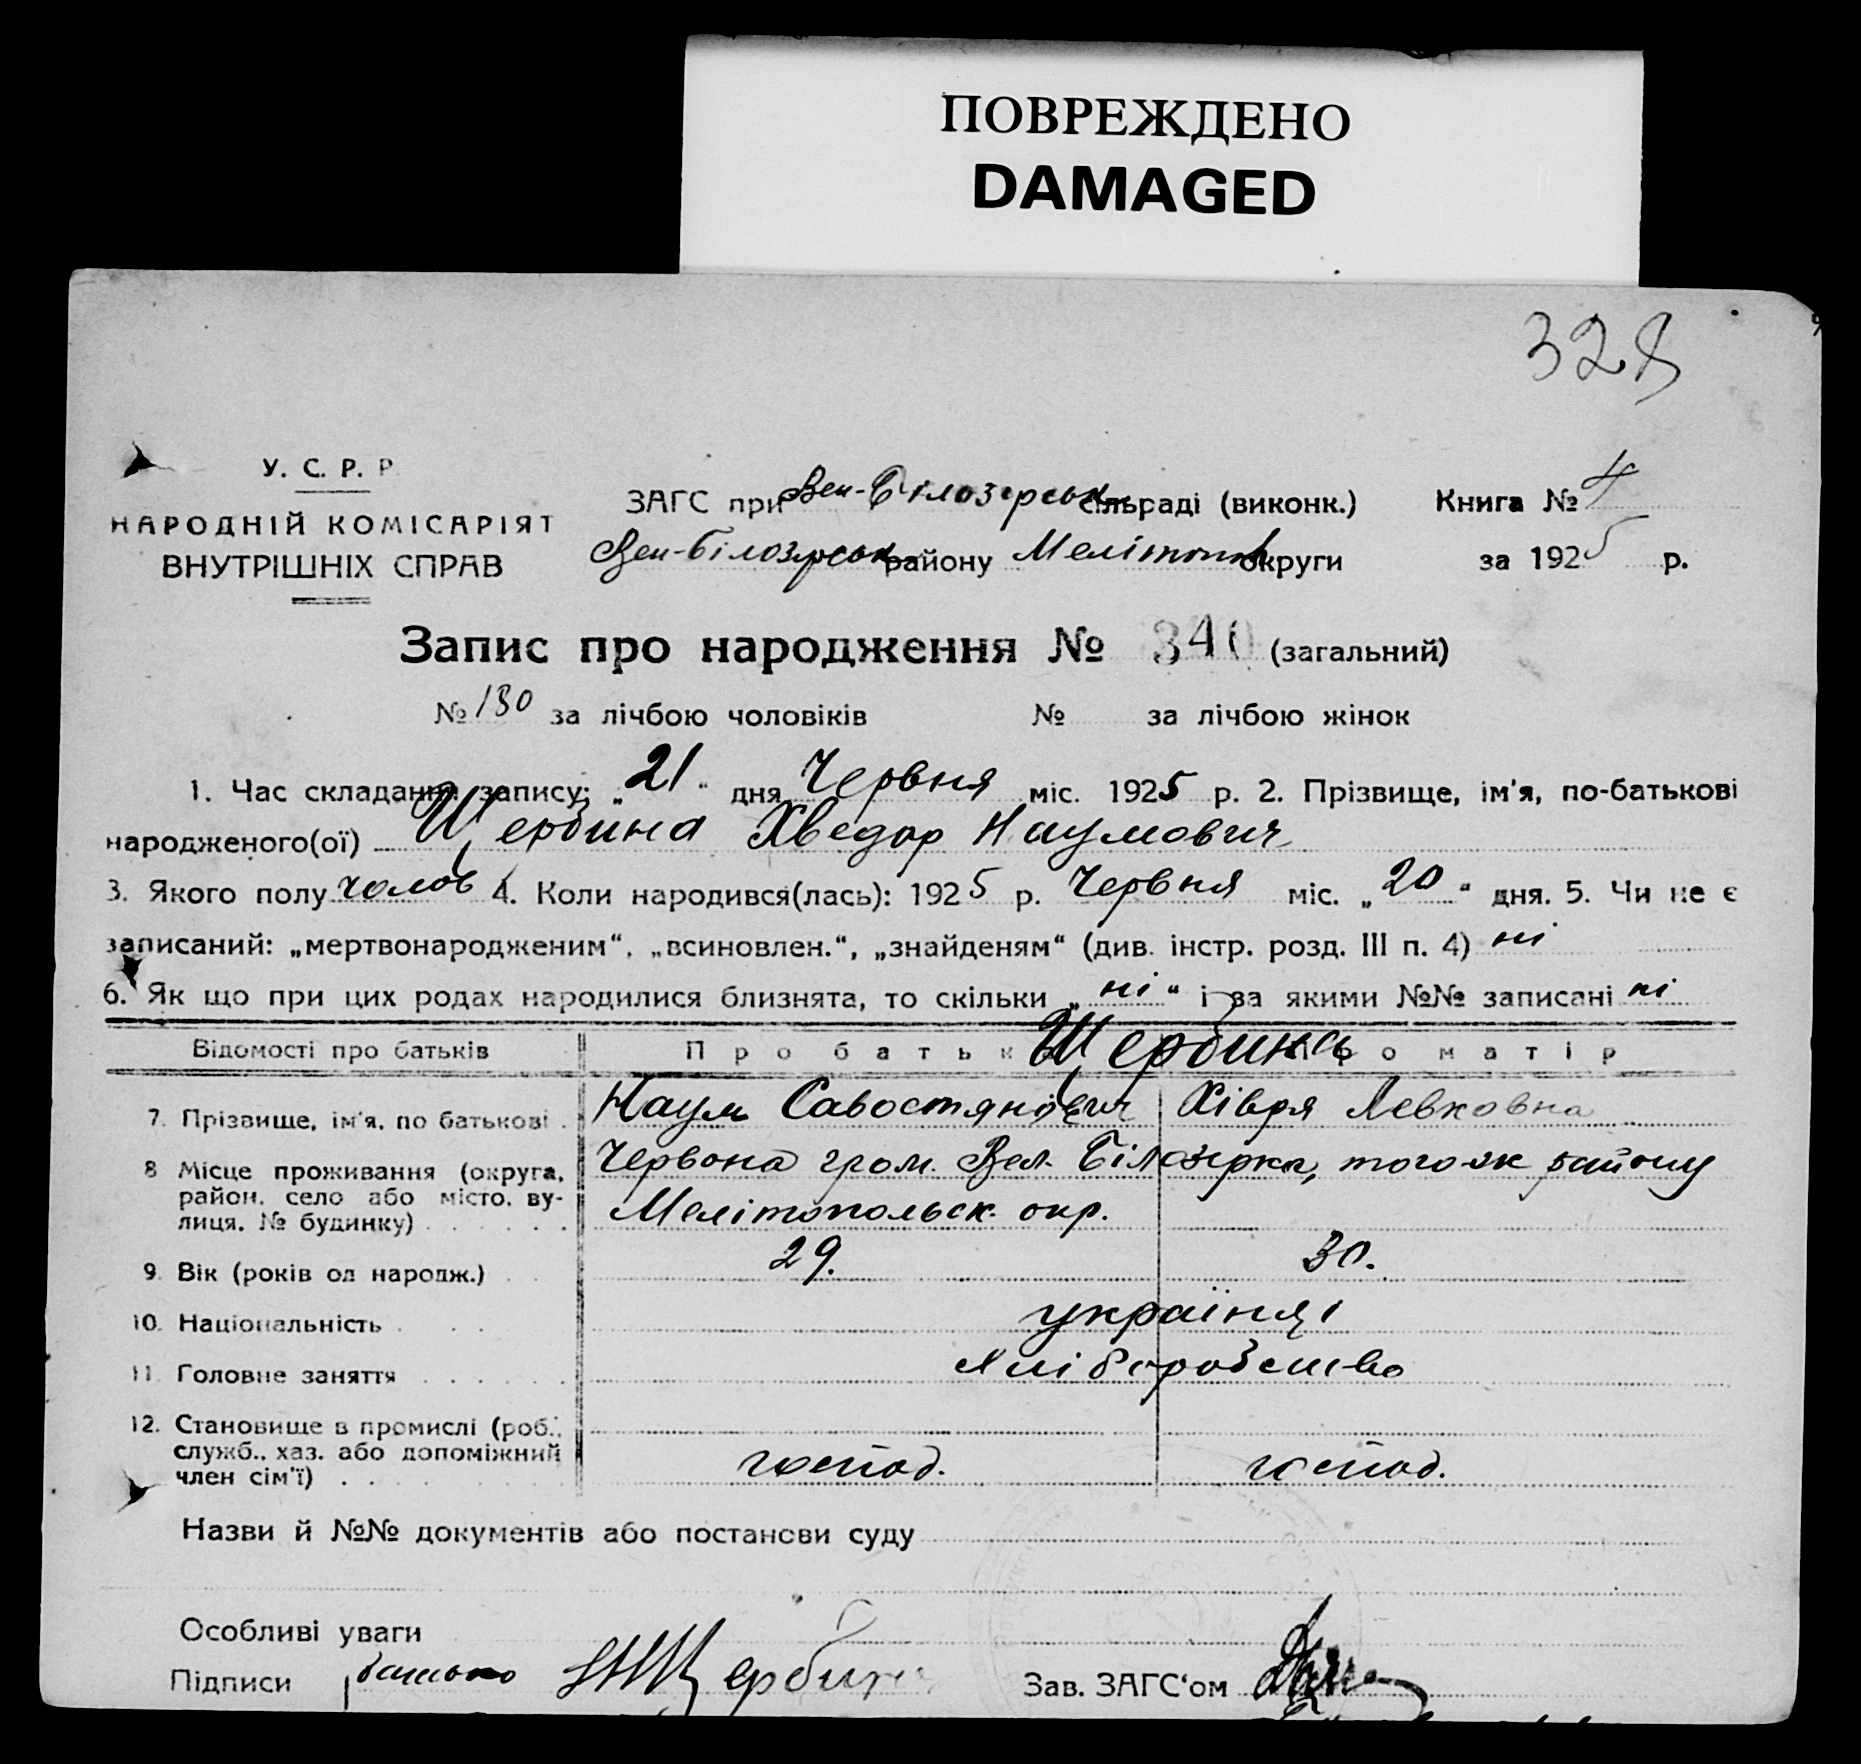 ПОВРЕЖДЕНО
DAMAGED
328
У. С. Р. Р
НАРОДНІЙ КОМІСАРІЯТ
ВНУТРІШНІХ СПРАВ
ЗАГС при Вел-Білозерськ сільраді (виконк.) Книга № 4
Вел-Білозерськ району Мелітоп округи за 1925 р.
Запис про народження № 340 (загальний)
№ 130 за лічбою чоловіків № за лічбою жінок
1. Час складання запису: „21“ дня Червня міс. 1925 р. 2. Прізвище, ім'я, по-батькові
народженого(ої) Щербина Хведор Наумович
3. Якого полу чолов 4. Коли народився(лась): 1925 р. Червня міс. „20“ дня. 5. Чи не є
записаний: „мертвонародженим“, „всиновлен.“, „знайденям“ (див. інстр. розд. III п. 4) ні
6. Як що при цих родах народилися близнята, то скільки „ні“ і за якими №№ записані ні
Відомості про батьків Про батька Про матір
Щербина
7. Прізвище, ім'я, по батькові . Наум Савостянович Хівря Левковна
8 Місце проживання (округа, район, село або місто, ву-лиця, № будинку) Червона гром. Вел. Білозірка, того-ж району
Мелітопольск. окр.
9. Вік (років од народж.) 29. 30.
10. Національність українці
11. Головне заняття хліборобство
12. Становище в промислі (роб., служб., хаз. або допоміжний член сім'ї) господ. господ.
Назви й №№ документів або постанови суду
Особливі уваги
Підписи батько Щербина Зав. ЗАГС‘ом